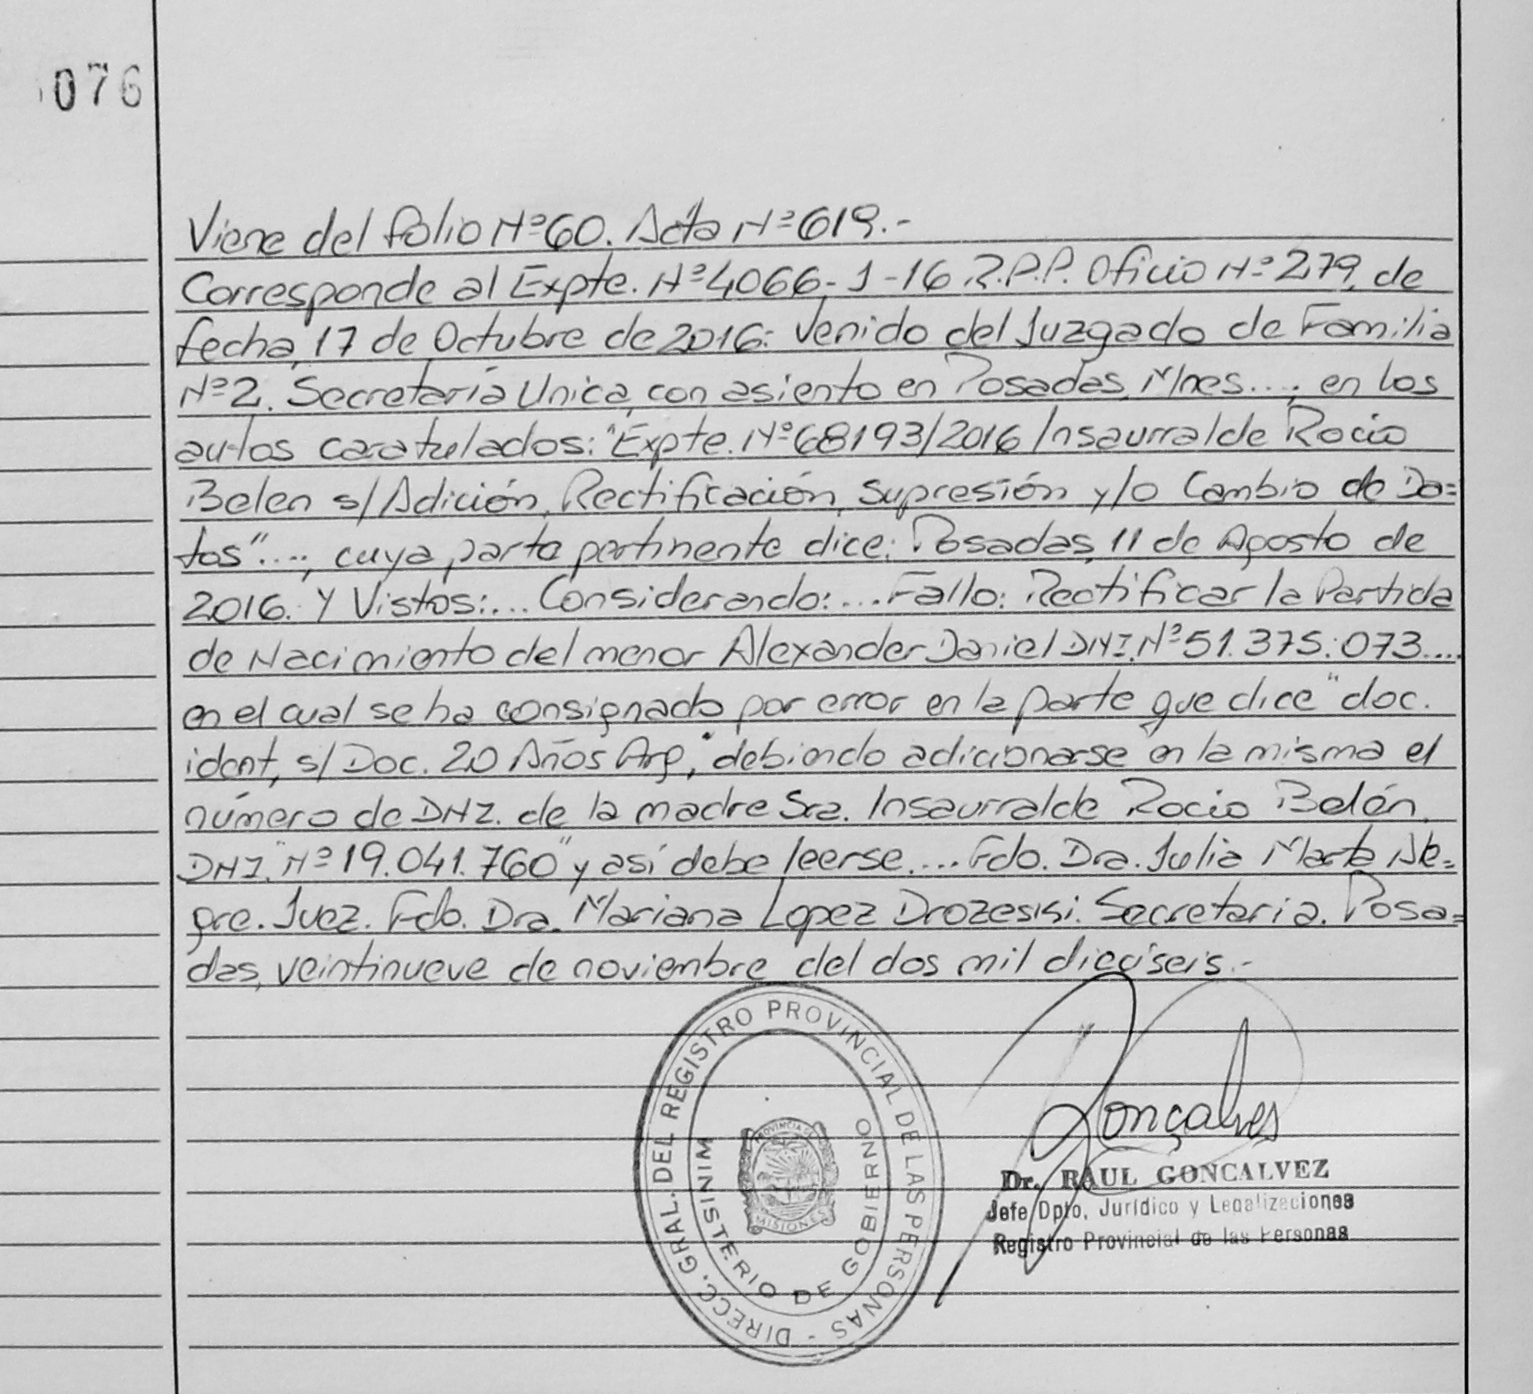 076
Viene del folio Nº60. Acta Nº619.-
Corresponde al Expte. Nº4066-1-16 R.P.P. Oficio Nº279, de
fecha, 17 de Octubre de 2016: Venido del Juzgado de Familia
Nº2. Secretaría Unica, con asiento en Posadas, Mnes...., en los
autos caratulados: "Expte. Nº68193/2016 Insaurralde Rocio
Belen s/Adición, Rectificación, Supresión y/o Cambio de Da=
tos"...., cuya parte pertinente dice: Posadas, 11 de Agosto de
2016. Y Vistos:... Considerando:... Fallo: Rectificar la Partida
de Nacimiento del menor Alexander Daniel DNI. Nº51.375.073....
en el cual se ha consignado por error en la parte que dice "doc.
ident, s/Doc. 20 Años Arg," debiendo adicionarse en la misma el
número de DNI. de la madre Sra. Insaurralde Rocio Belén,
DNI. "Nº19.041.760" y así debe leerse.... Fdo. Dra. Julia Marta Ale=
gre. Juez. Fdo. Dra. Mariana Lopez Drozeski. Secretaria. Posa=
das, veintinueve de noviembre del dos mil dieciseis.-
DIRECC. GRAL. DEL REGISTRO PROVINCIAL DE LAS PERSONAS -
MINISTERIO DE GOBIERNO
PROVINCIA DE
MISIONES
Gonçalves
Dr. RAUL GONCALVEZ
Jefe Dpto, Jurídico y Legalizaciones
Registro Provincial de las Personas